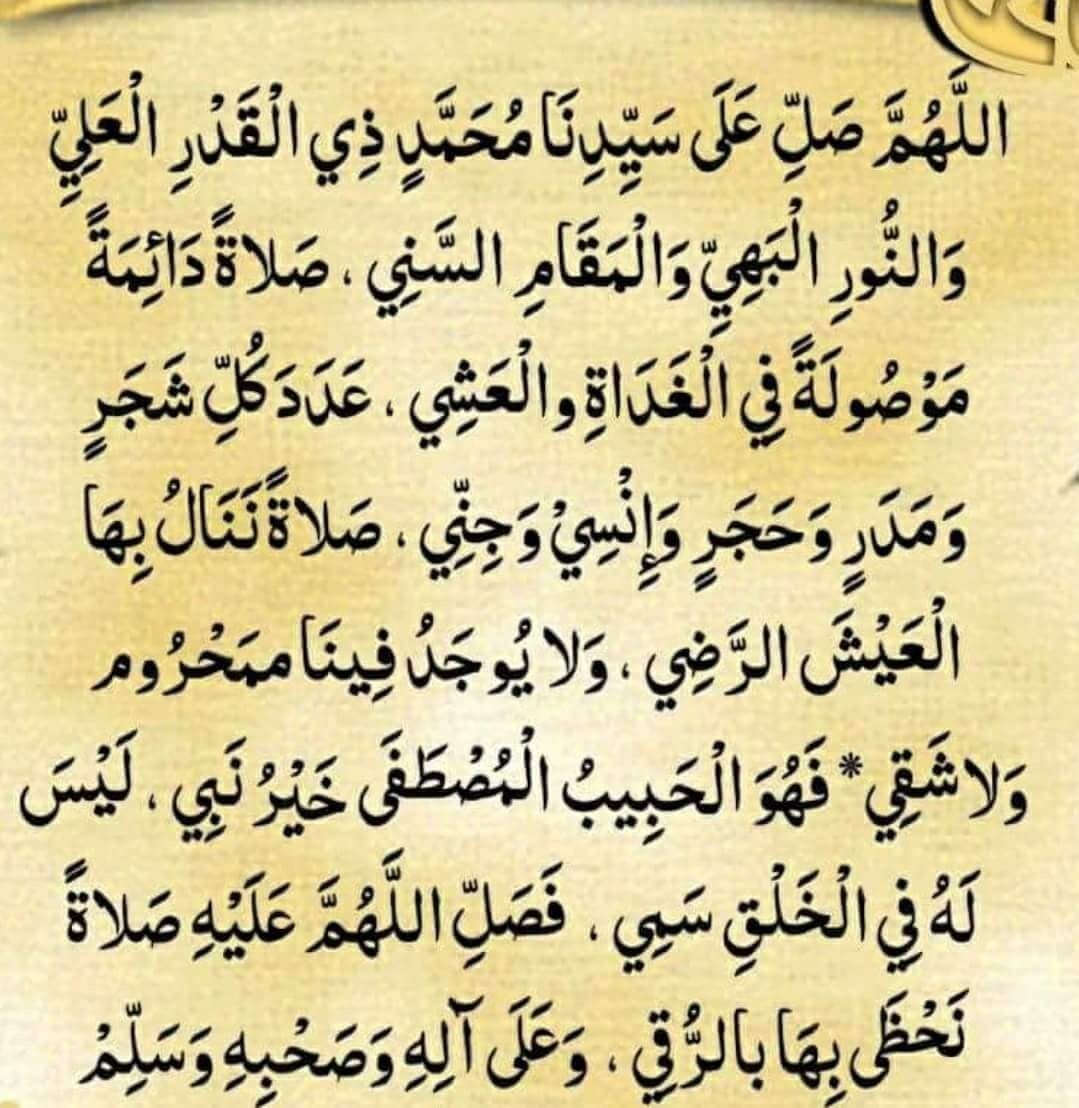 اللَّهُمَّ صَلِّ عَلَى سَيِّدِنَا مُحَمَّدٍ ذِي الْقَدْرِ الْعَلِيِّ
وَالنُّورِ الْبَهِيِّ وَالْمَقَامِ السَّنِي ، صَلاةً دَائِمَةً
مَوْصُولَةً فِي الْغَدَاةِ والْعَشِي ، عَدَدَ كُلِّ شَجَرٍ
وَمَدَرٍ وَحَجَرٍ وَإِنْسِيْ وَجِنِّي ، صَلاةً نَنَالُ بِهَا
الْعَيْشَ الرَّضِي ، وَلا يُوجَدُ فِينَا مَحْرُوم
وَلا شَقِي * فَهُوَ الْحَبِيبُ الْمُصْطَفَى خَيْرُ نَبِي ، لَيْسَ
لَهُ فِي الْخَلْقِ سَمِي ، فَصَلِّ اللَّهُمَّ عَلَيْهِ صَلاةً
نَحْظَى بِهَا بِالرُّقِي ، وَعَلَى آلِهِ وَصَحْبِهِ وَسَلِّمْ